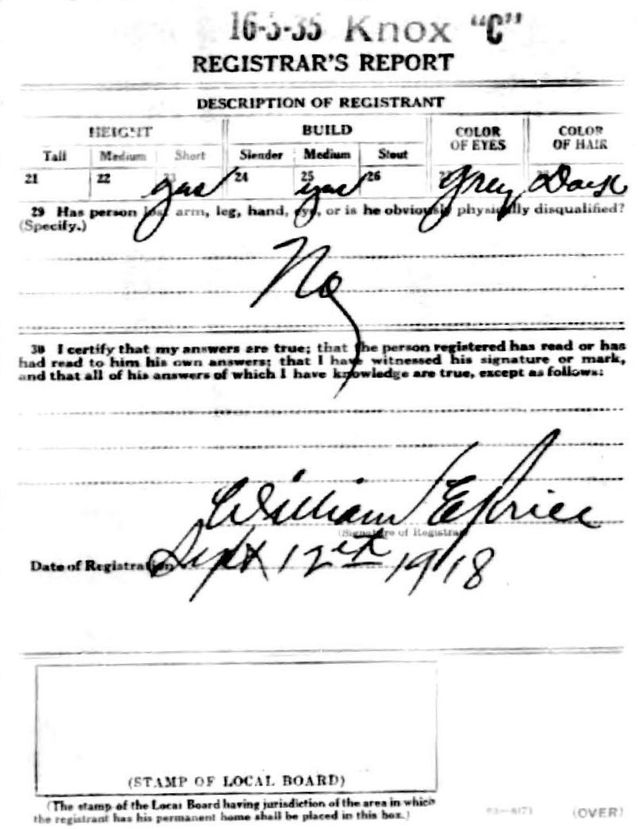 16-5-35 Knox "C"
REGISTRAR'S REPORT
DESCRIPTION OF REGISTRANT
HEIGHT BUILD COLOR OF EYES COLOR OF HAIR
Tall Medium Short Slender Medium Stout
21 22 23 yes 24 25 yes 26 27 Grey Dark
29 Has person lost arm, leg, hand, eye, or is he obviously physically disqualified?
(Specify.)
No
30 I certify that my answers are true; that the person registered has read or has
had read to him his own answers; that I have witnessed his signature or mark,
and that all of his answers of which I have knowledge are true, except as follows:
William E Price
(Signature of Registrar)
Date of Registration Sept 12th 1918
(STAMP OF LOCAL BOARD)
(The stamp of the Local Board having jurisdiction of the area in which
the registrant has his permanent home shall be placed in this box.)
(OVER)